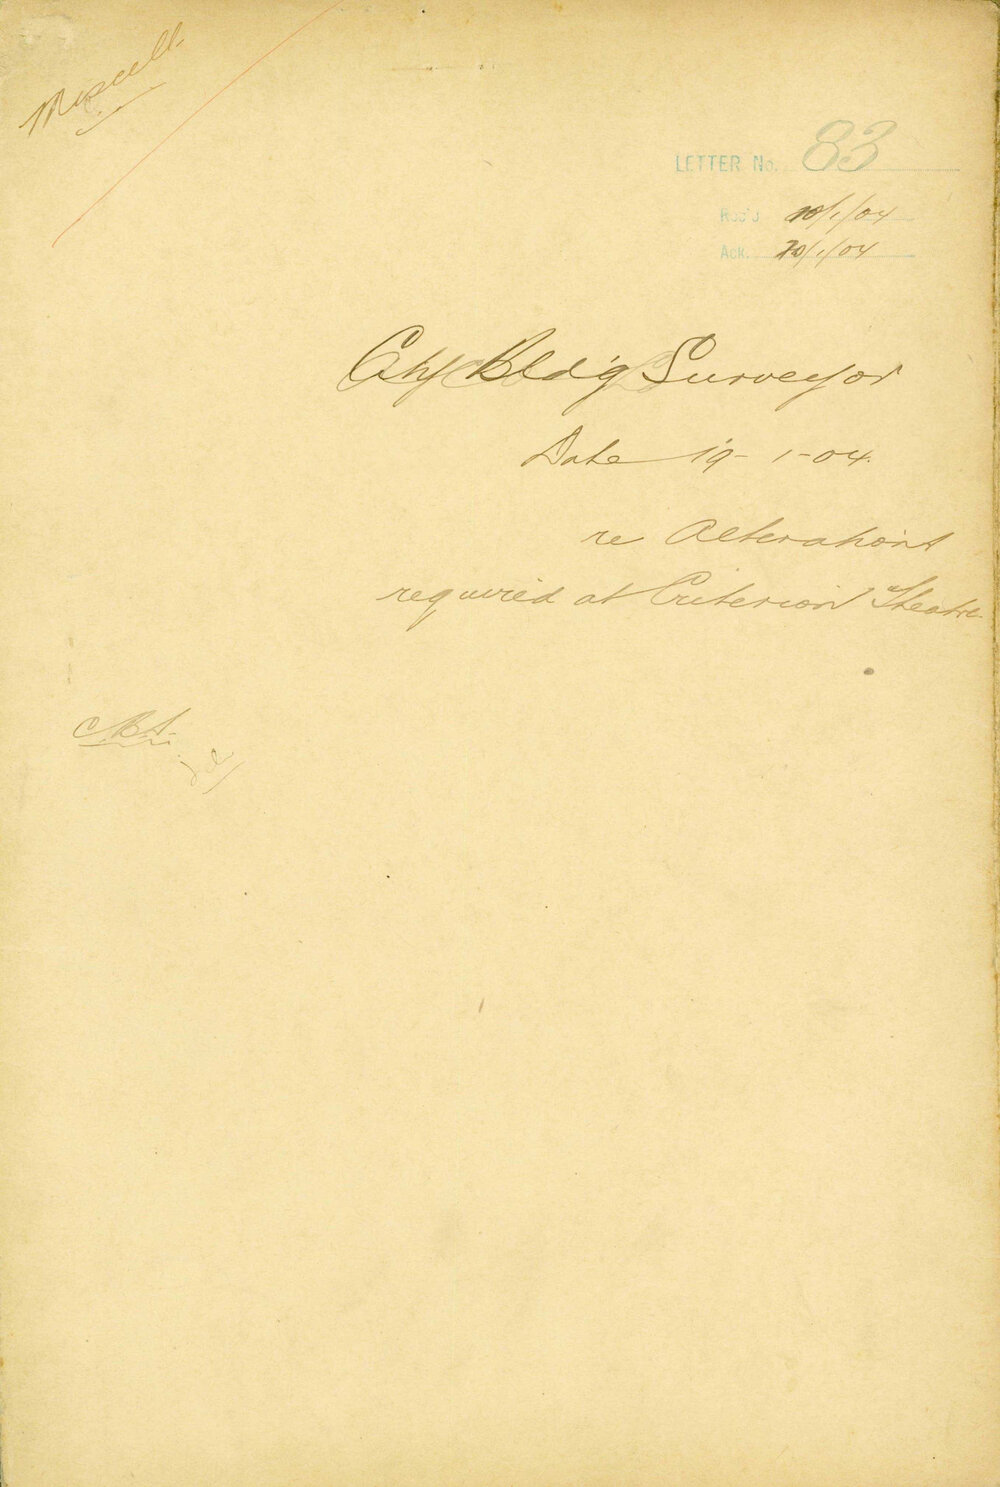 Miscell.
LETTER No. 83
Rec'd 20/1/04
Ack. 20/1/04
City Bldg Surveyor
Date 19-1-04.
re Alterations
required at Criterion Theatre.